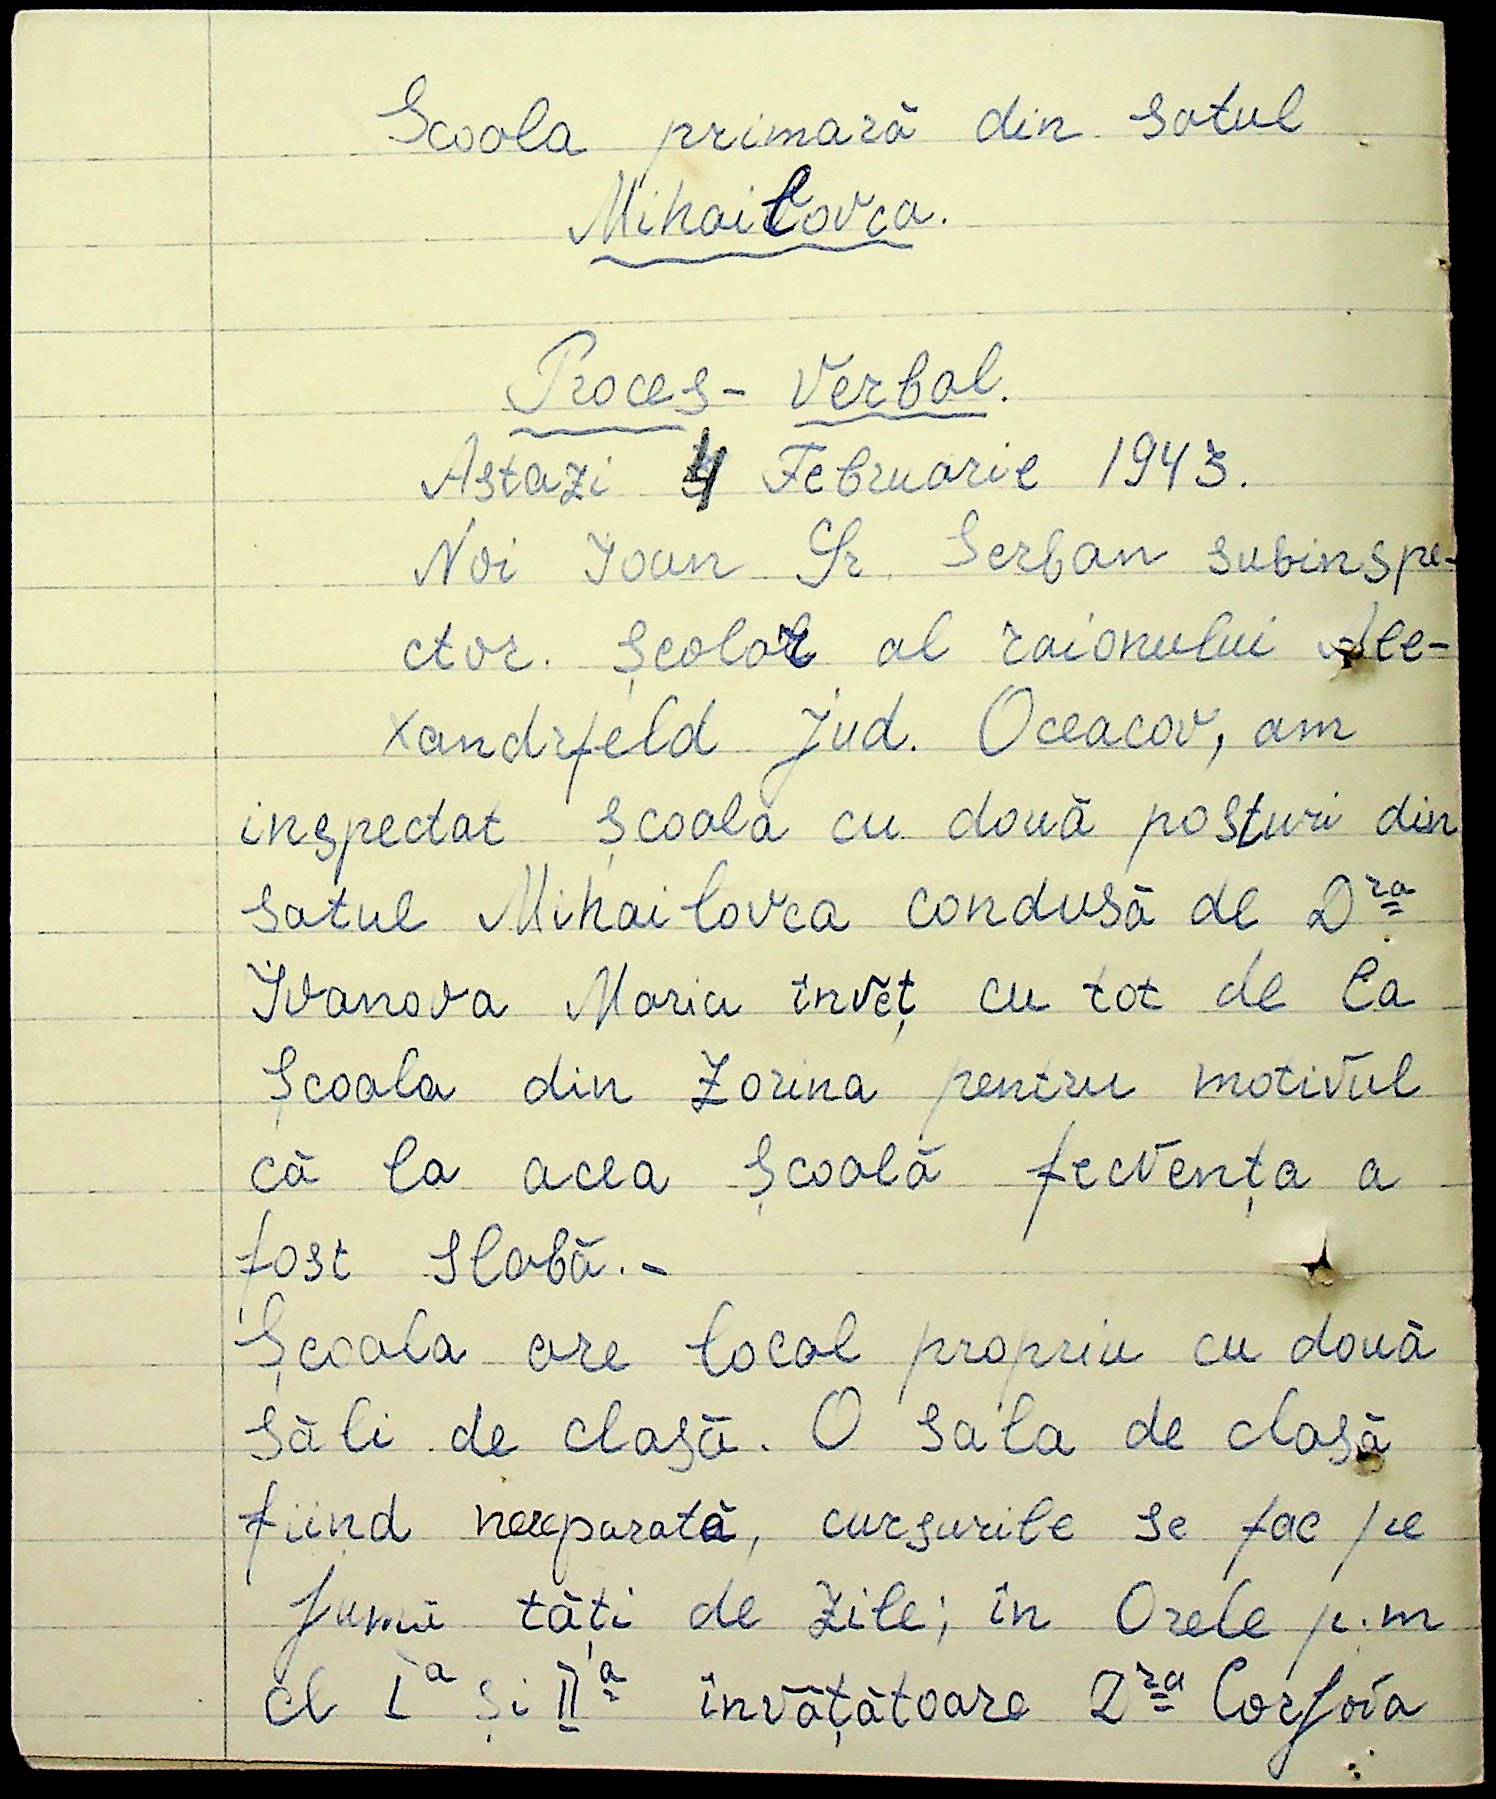 Scoala primară din satul
Mihailovca.
Proces- Verbal.
Astazi 4 Februarie 1943.
Noi Ioan Gr. Serban subinspe-
ctor. școlar al raionului Ale-
xandrfeld jud. Oceacov, am
inspectat școala cu două posturi din
satul Mihailovca condusă de Dra
Ivanova Maria învėț cu tot de la
Școala din Zorina pentru motivul
că la acea școală fecvența a
fost slabă.-
Școala are local propriu cu două
săli de clasă. O sala de clasă
fiind nereparată, cursurile se fac pe
jumă tăți de zile; în Orele p.m
cl Ia și IIa învățătoare Dra